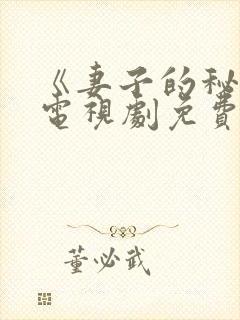 《妻子的秘
電視劇免費
董必武